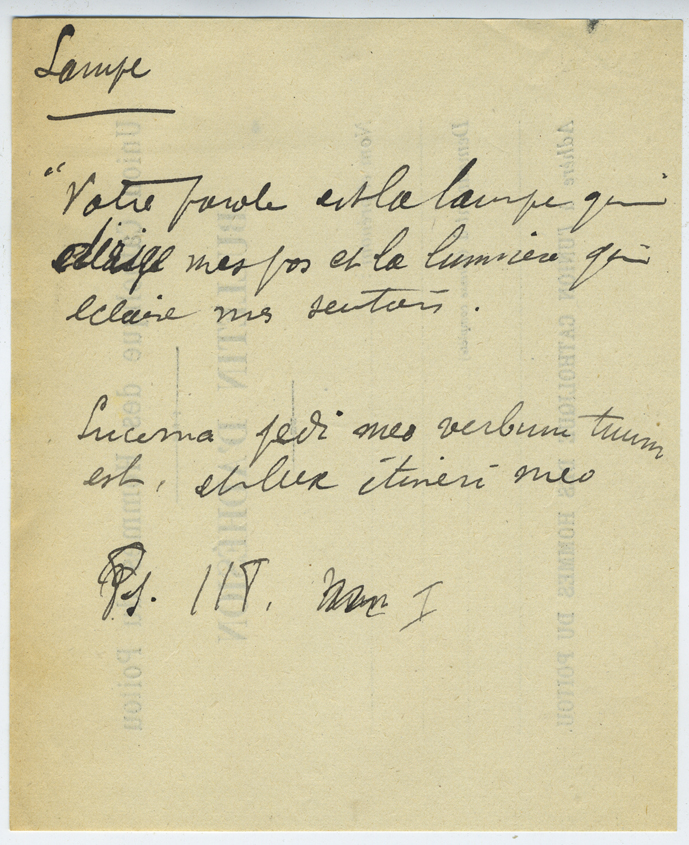 Lampe
"Votre parole est la lampe qui
dirige mes pas et la lumière qui
éclaire mes sentiers.
Lucerna pedi meo verbum tuum
est, et lux itineri meo
Ps. 118. I